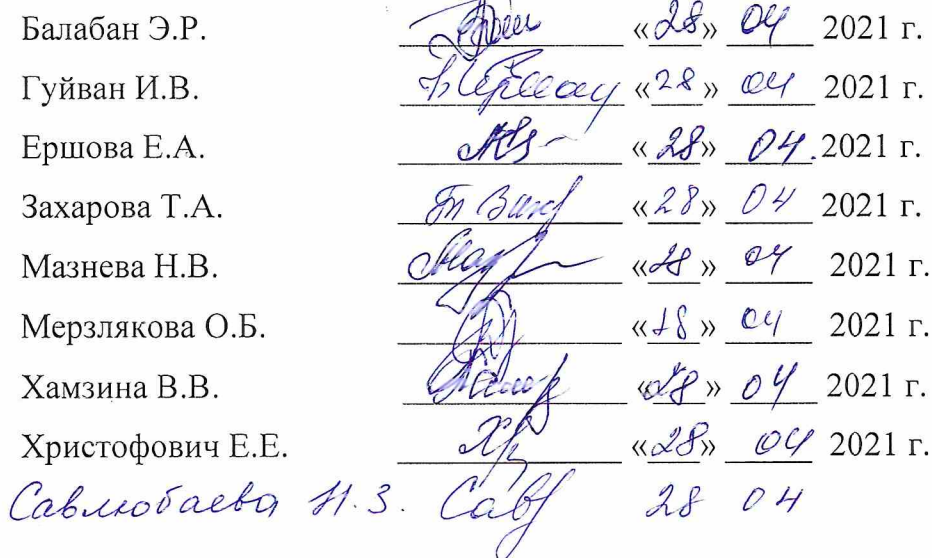 Балабан Э.Р. «28» 04 2021 г.
Гуйван И.В. «28» 04 2021 г.
Ершова Е.А. «28» 04. 2021 г.
Захарова Т.А. «28» 04 2021 г.
Мазнева Н.В. «28» 04 2021 г.
Мерзлякова О.Б. «28» 04 2021 г.
Хамзина В.В. «28» 04 2021 г.
Христофович Е.Е. «28» 04 2021 г.
Савлюбаева Н.З. 28 04